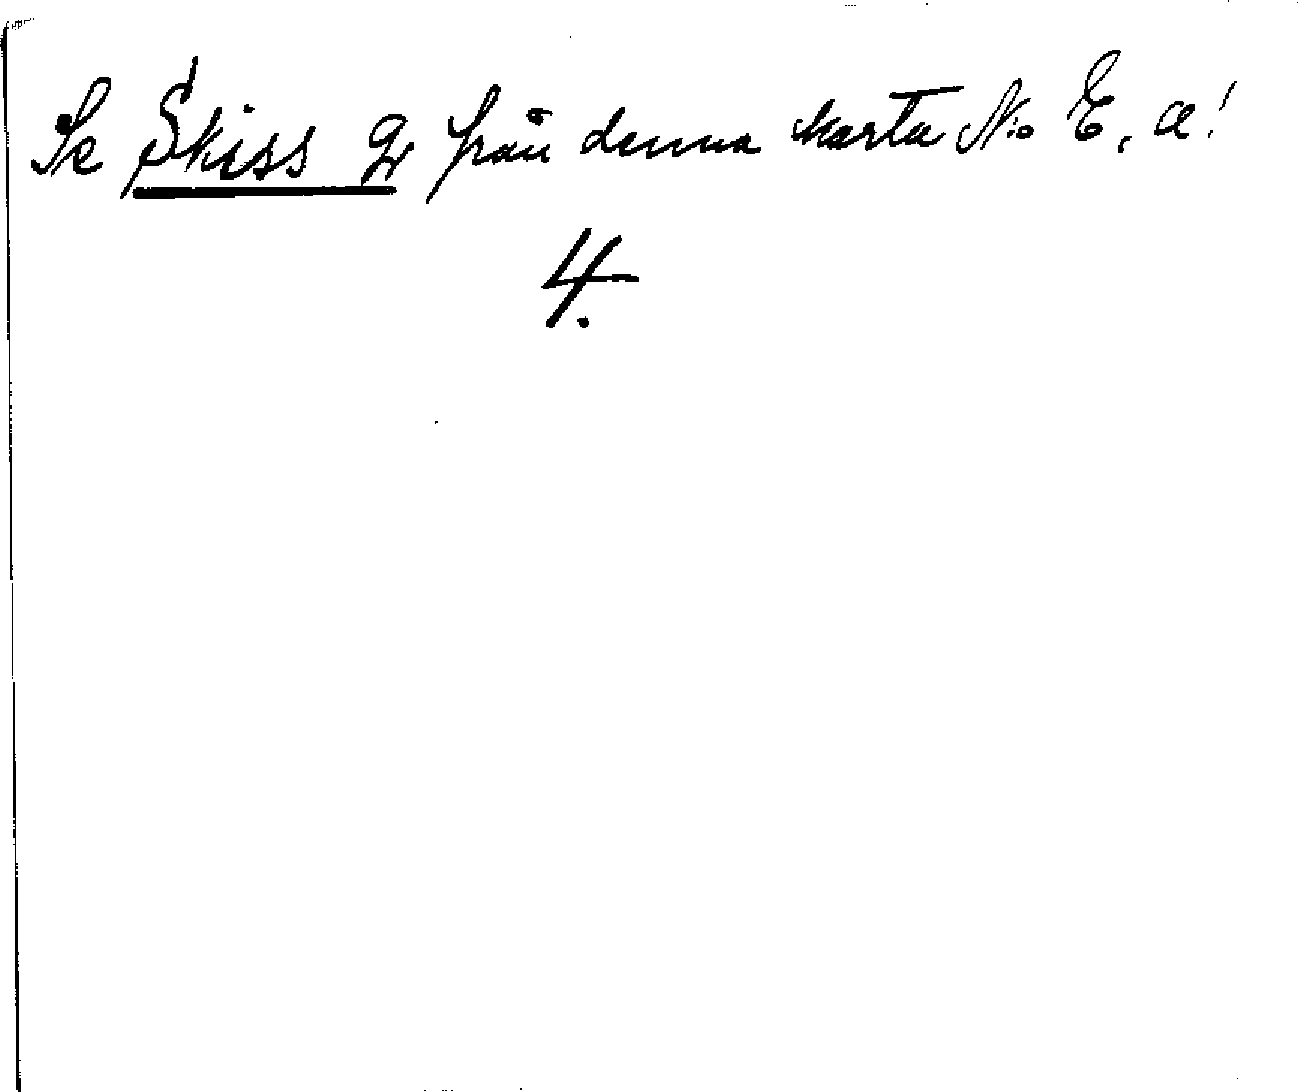 Se Skiss 2 från denna karta No E, a!
4.